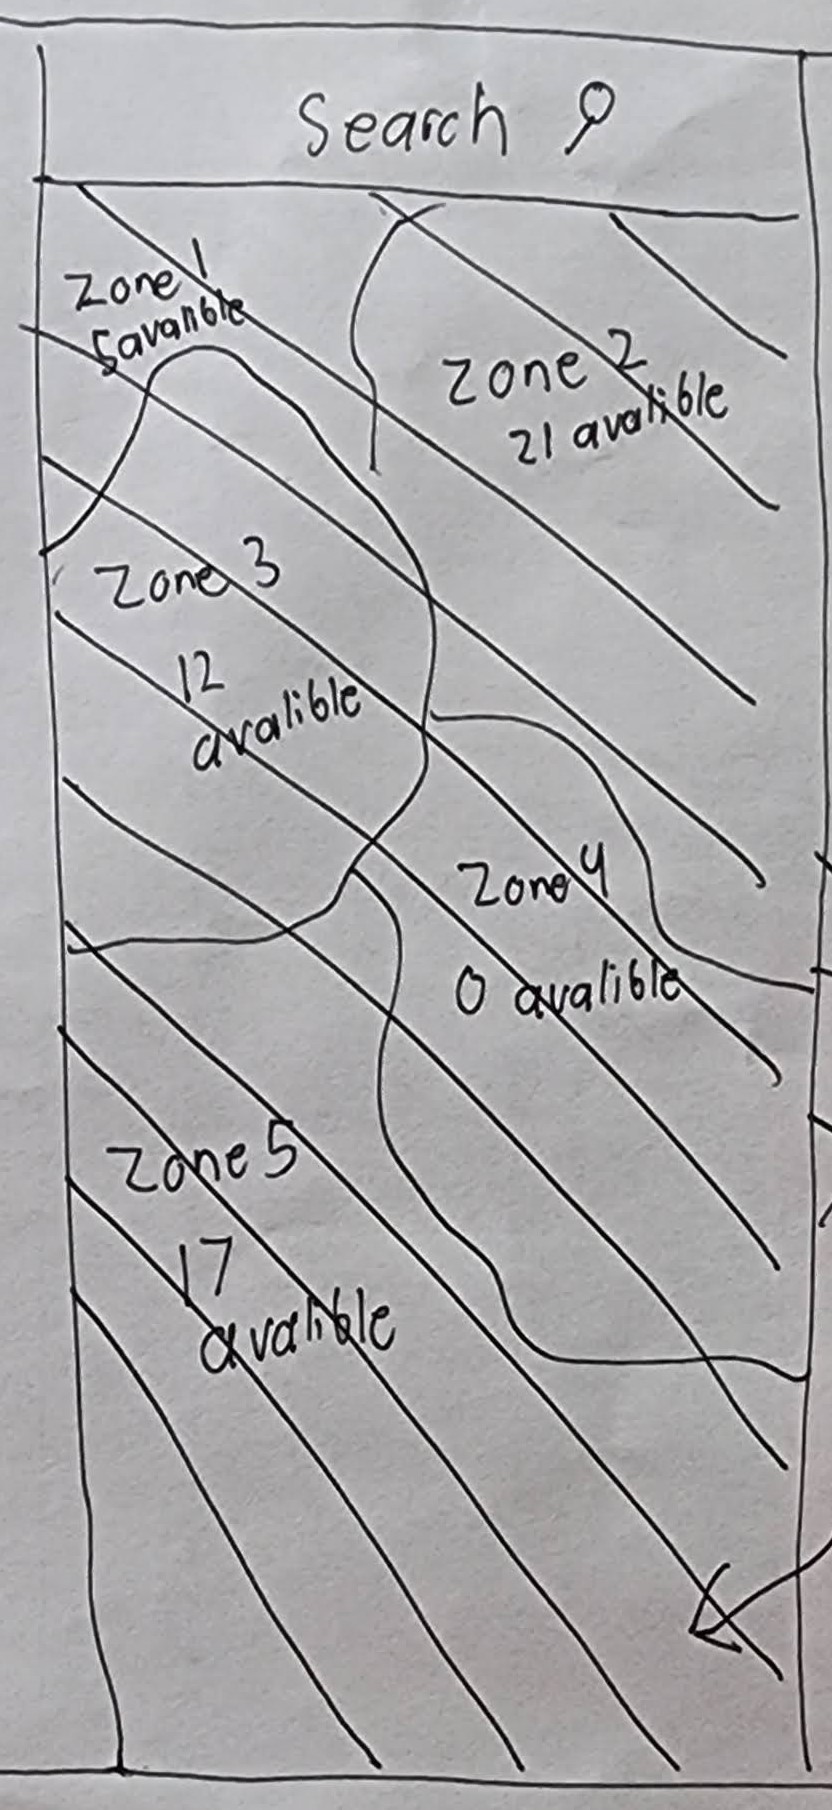 Search
Zone 1
5 avalible
Zone 2
21 avalible
Zone 3
12
avalible
Zone 4
0 avalible
Zone 5
17
avalible